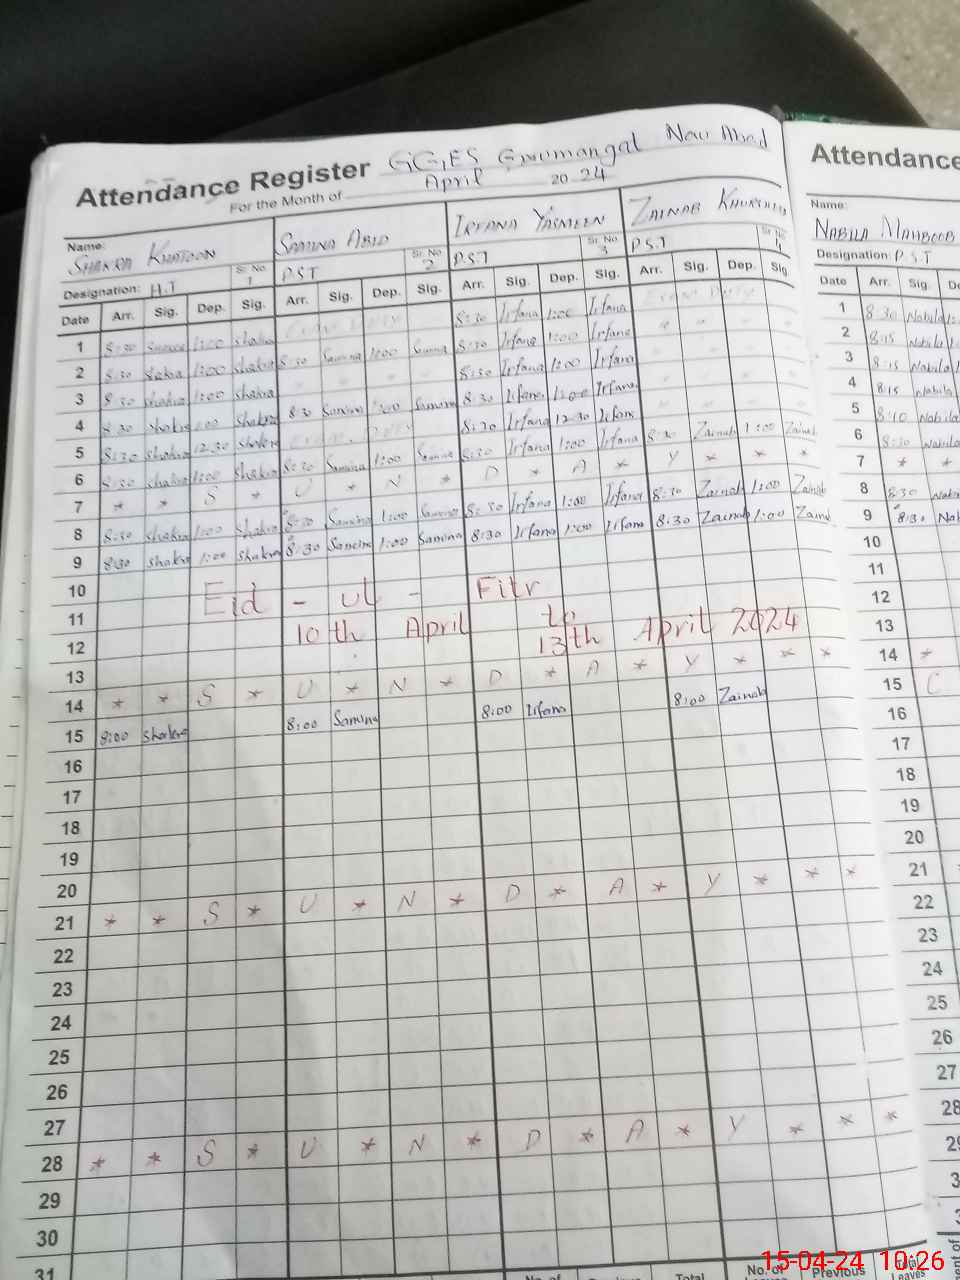 Attendance Register GGES Gurumangat New Abad
For the Month of April 2024
Attendance
Name: SHAKRA KHATOON
SAMINA ABID
IRFANA YASMEEN
ZAINAB
Name:
NABILA MAHBOOB
Designation: H.T Sr. No. 1
P.S.T Sr. No. 2
P.S.T Sr. No. 3
P.S.T Sr. No. 4
Designation: P.S.T
Date Arr. Sig. Dep. Sig. Arr. Sig. Dep. Sig. Arr. Sig. Dep. Sig. Arr. Sig. Dep. Sig.
Date Arr. Sig.
1 8:30 1:00 Shakra 8:30 Irfana 1:00 Irfana
2 8:30 Shakra 1:00 Shakra 8:30 Samina 1:00 Samina 8:30 Irfana 1:00 Irfana
3 8:30 Shakra 1:00 Shakra 8:30 Irfana 1:00 Irfana
4 8:30 Shakra 1:00 Shakra 8:30 Samina 1:00 Samina 8:30 Irfana 1:00 Irfana
5 8:30 Shakra 12:30 Shakra 8:30 Irfana 12:30 Irfana
6 8:30 Shakra 1:00 Shakra 8:30 Samina 1:00 Samina 8:30 Irfana 1:00 Irfana 8:30 Zainab 1:00 Zainab
7 * * S * U * N * D * A * Y * * *
8 8:30 Shakra 1:00 Shakra 8:30 Samina 1:00 Samina 8:30 Irfana 1:00 Irfana 8:30 Zainab 1:00 Zainab
9 8:30 Shakra 1:00 Shakra 8:30 Samina 1:00 Samina 8:30 Irfana 1:00 Irfana 8:30 Zainab 1:00 Zainab
10
11 Eid - ul - Fitr
12 10th April to
13 13th April 2024
14 * * S * U * N * D * A * Y * * *
15 8:00 Shakra 8:00 Samina 8:00 Irfana 8:00 Zainab
16
17
18
19
20
21 * * S * U * N * D * A * Y * * *
22
23
24
25
26
27
28 * * S * U * N * D * A * Y * * *
29
30
31
1 8:30 Nabila
2 8:15 Nabila
3 8:15 Nabila
4 8:15 Nabila
5 8:10 Nabila
6 8:30 Nabila
7 * *
8 8:30
9 8:30
10
11
12
13
14 *
15 C
16
17
18
19
20
21
22
23
24
25
26
27
28
No. of
Total
No. of
Previous
Total
Leaves
15-04-24 10:26